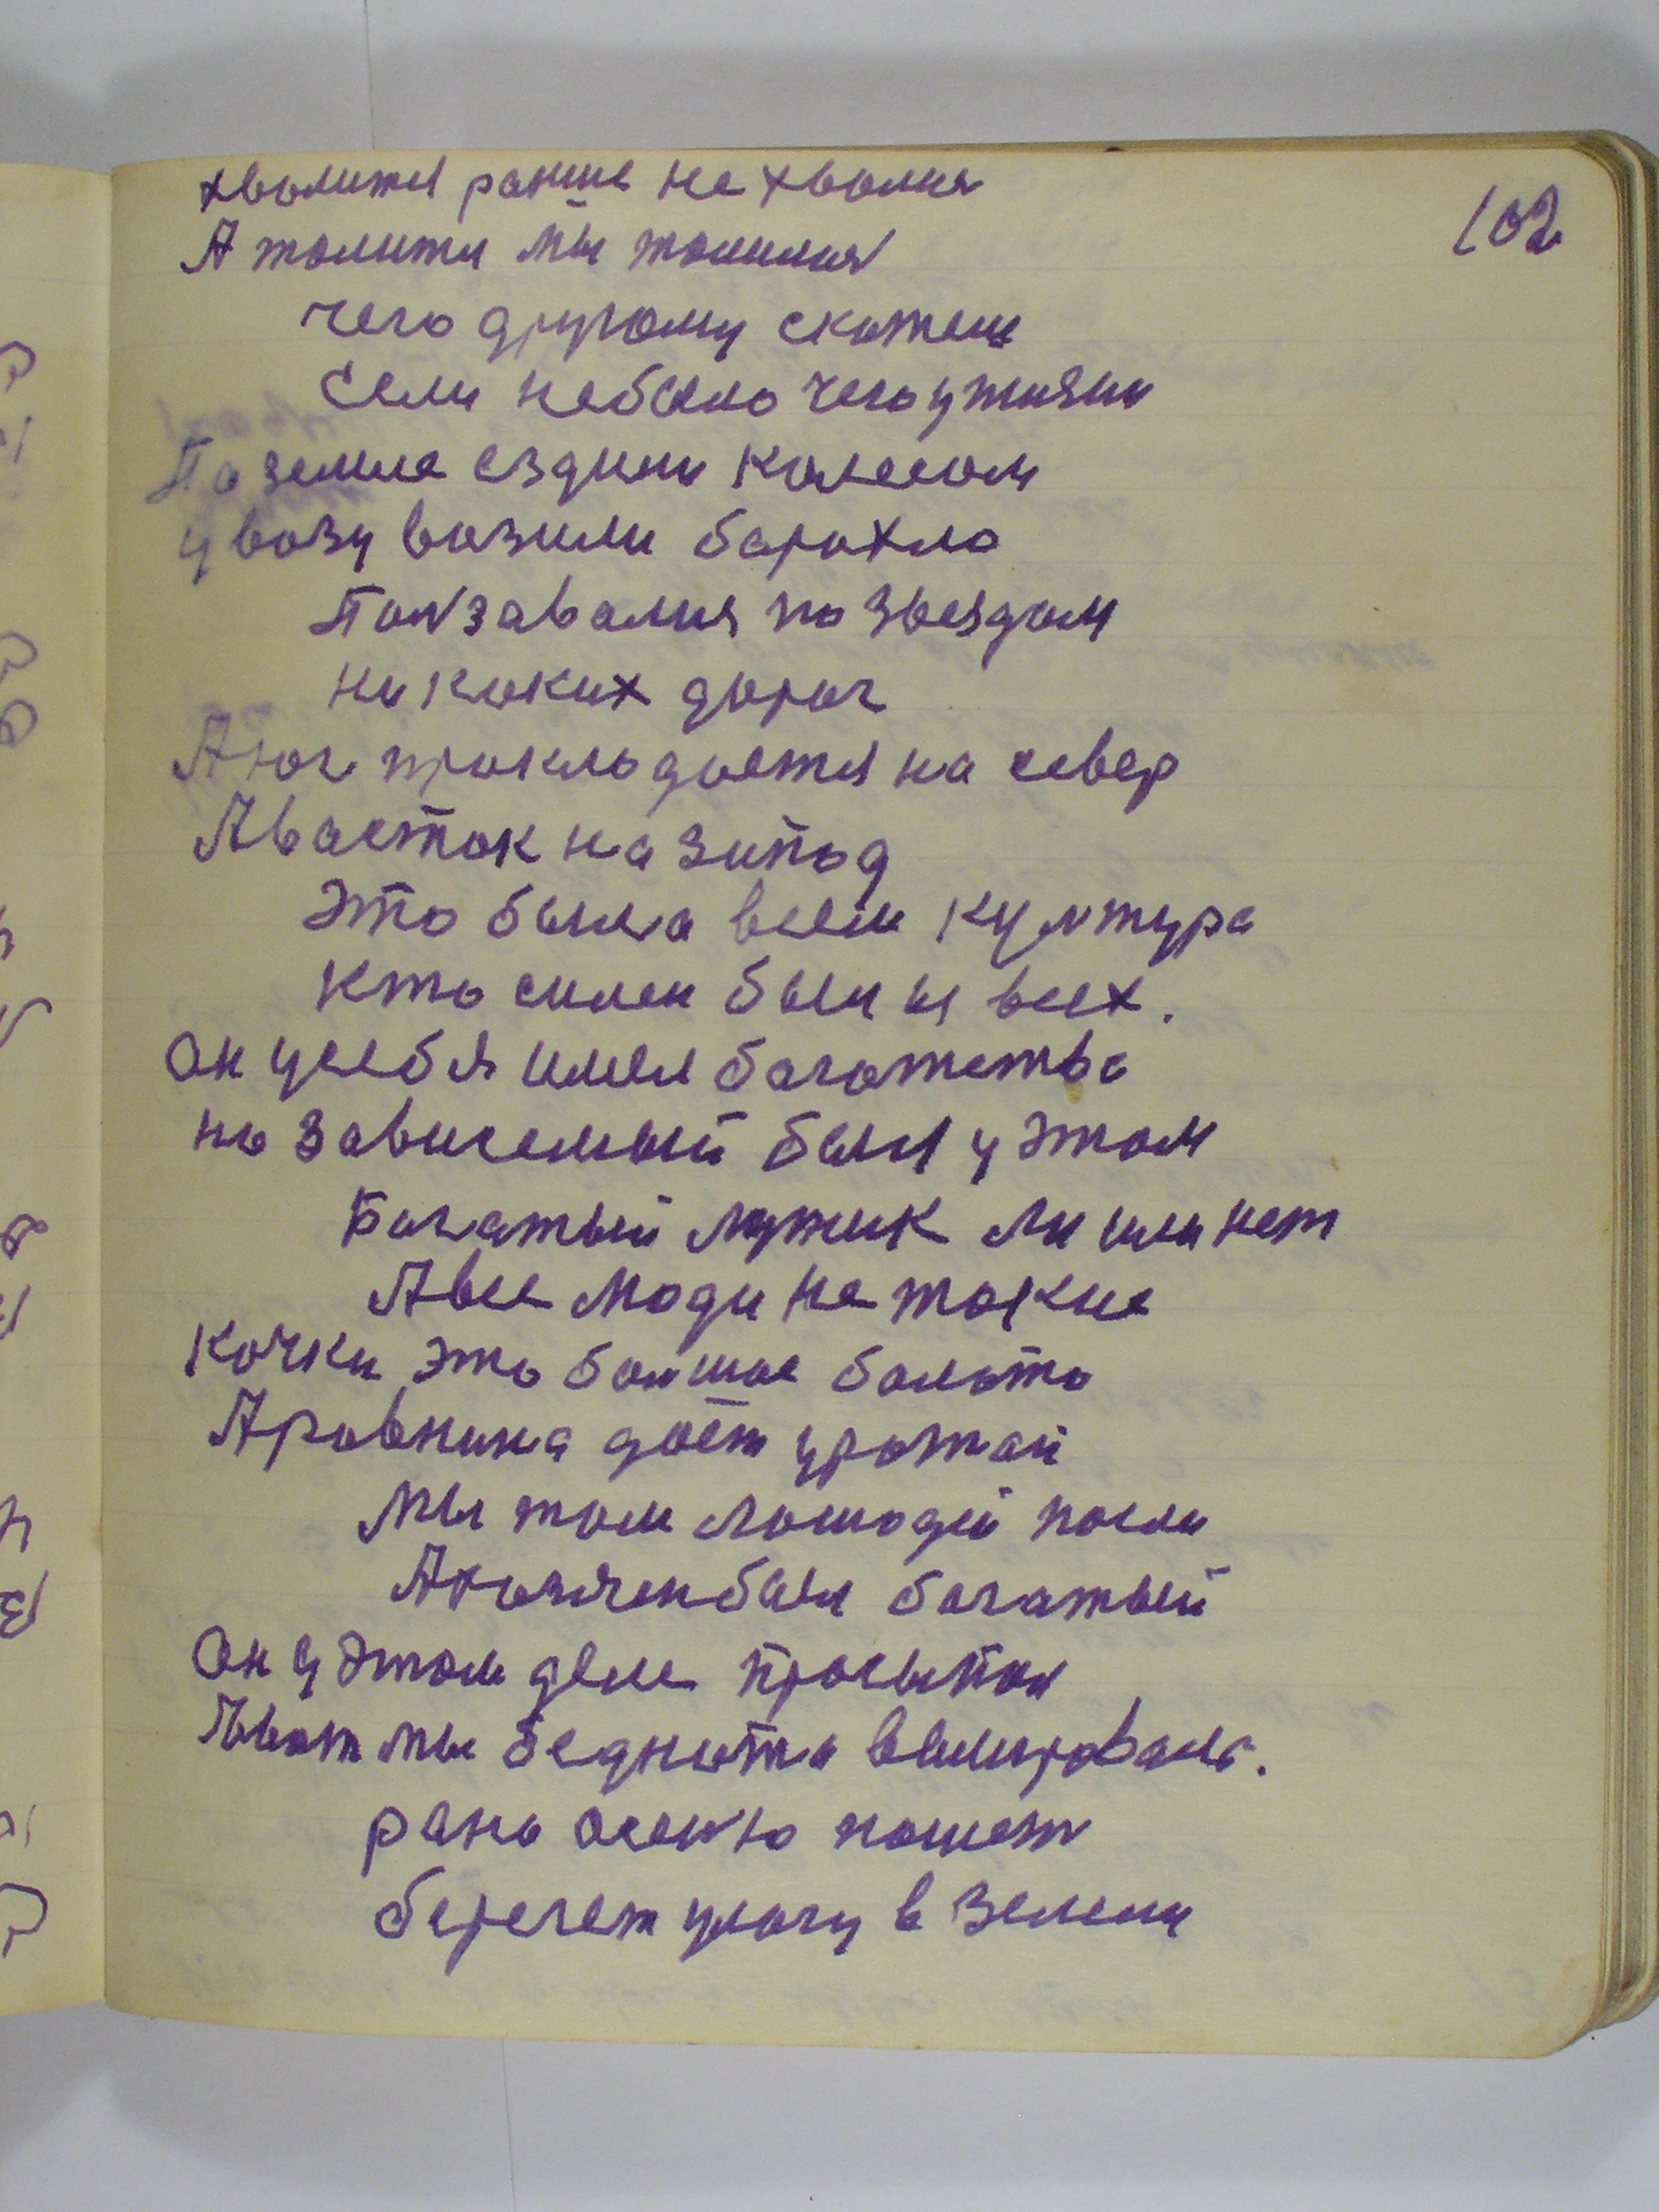 102
хволится раньше не хволися
А толится мы толилися
чего другому скажеш
Если небыло чего у жизни
По земле ездили колесом
у возу возили барахло
Ползавалися по звездам
ни каких дорог
А юг прокладается на север
А васток на запод
Это была всем културa
Кто силен был из всех.
он у себя имел богатства
но зависемый был у этом
Богатый мужик ли или нет
А все люди не такие
Кочки это больше болото
А равнина даёт урожай
Мы там лошадей пасли
А хозяен был богатый
Он у этом деле просыпал
мы беднота
рано осенью пашет
бережет улагу в земели